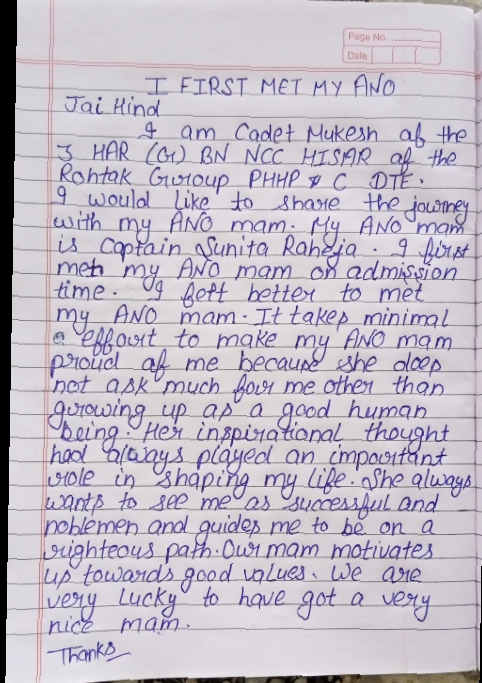 Page No.
Date
I FIRST MET MY ANO
Jai Hind
I am Cadet Mukesh of the
3 HAR (G) BN NCC HISAR of the
Rohtak Group PHHP & C DTE.
I would like to share the journey
with my ANO mam. My ANO mam
is Captain Sunita Raheja. I first
met my ANO mam on admission
time. I felt better to met
my ANO mam. It takes minimal
effourt to make my ANO mam
proud of me because she does
not ask much four me other than
growing up as a good human
being. Her inspirational thought
had always played an important
role in shaping my life. She always
wants to see me as successful and
noblemen and guides me to be on a
righteous path. Our mam motivates
us towards good values. We are
very lucky to have got a very
nice mam.
Thanks